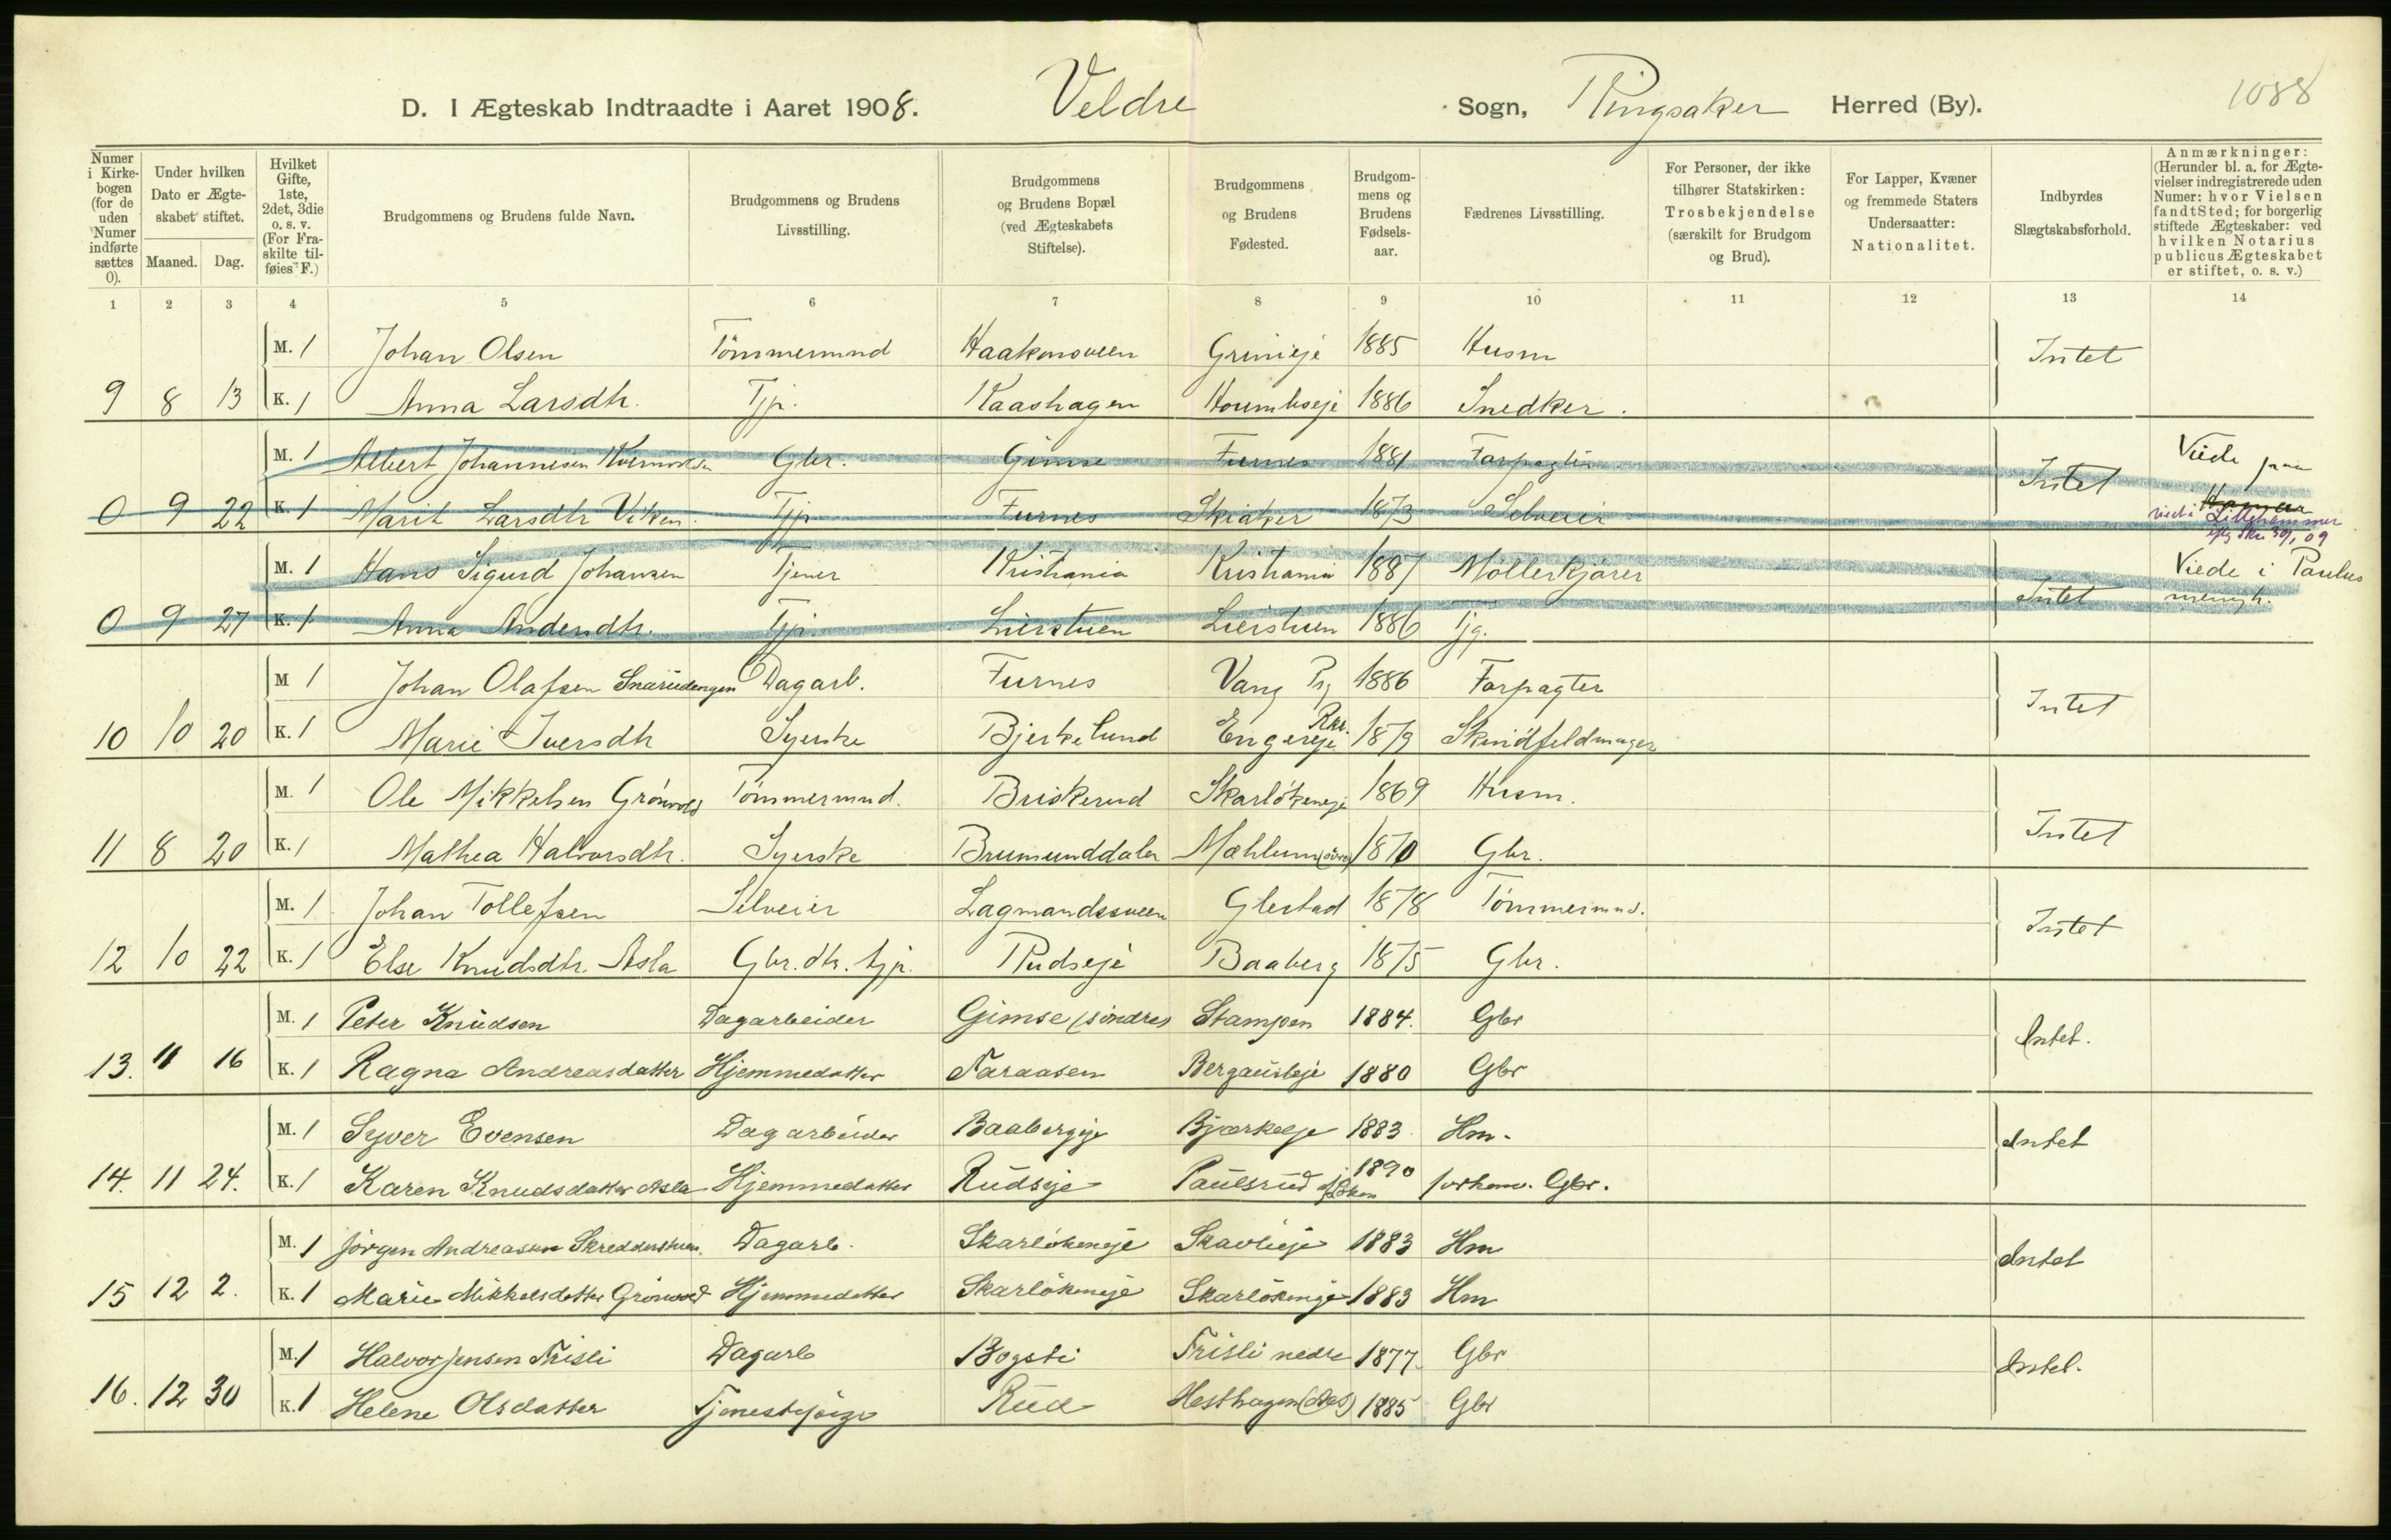 1088
D. I Ægteskab Indtraadte i Aaret 1908. Veldre Sogn, Ringsaker Herred (By).
Numer i Kirkebogen (for de uden Numer indførte sættes 0).
Under hvilken Dato er Ægteskabet stiftet.
Maaned. Dag.
Hvilket Gifte, 1ste, 2det, 3die o. s. v. (For Fraskilte tilføies F.)
Brudgommens og Brudens fulde Navn.
Brudgommens og Brudens Livsstilling.
Brudgommens og Brudens Bopæl (ved Ægteskabets Stiftelse).
Brudgommens og Brudens Fødested.
Brudgommens og Brudens Fødselsaar.
Fædrenes Livsstilling.
For Personer, der ikke tilhører Statskirken: Trosbekjendelse (særskilt for Brudgom og Brud).
For Lapper, Kvæner og fremmede Staters Undersaatter: Nationalitet.
Indbyrdes Slægtskabsforhold.
Anmærkninger: (Herunder bl. a. for Ægtevielser indregistrerede uden Numer: hvor Vielsen fandt Sted; for borgerlig stiftede Ægteskaber: ved hvilken Notarius publicus Ægteskabet er stiftet, o. s. v.)
1 2 3 4 5 6 7 8 9 10 11 12 13 14
M. 1 Johan Olsen Tömmermnd Haakonsveen Grinieje 1885 Husm Intet
9 8 13 K. 1 Anna Larsdtr. Tjp. Kaashagen 1886 Snedker.
M. 1 Albert Johannesen Gbr. Gimse Furnes 1881 Forpagter Intet Viede paa
0 9 22 K. 1 Marit Larsdtr Viken. Tjp Furnes Skiaker 1873 Selveier Hamar
viet i Lillehammer
M. 1 Hans Sigurd Johansen Tjener Kristiania Kristiania 1887 Möllerkjører Intet Viede i Paulus
0 9 27 K. 1 Anna Andersdtr. Tjp. Lierstuen Lierstuen 1886 Tjg. menigh.
M 1 Johan Olafsen Snarudengen Dagarb. Furnes Vang Pg 1886 Forpagter Intet
10 10 20 K. 1 Marie Iversdtr Syerske Bjerkelund Engereje 1879 Skindfeldmager
M. 1 Ole Mikkelsen Grönvold Tömmermnd. Briskerud Skarlökeneje 1869 Husm. Intet
11 8 20 K. 1 Mathea Halvorsdtr. Syerske Brumunddalen Mæhlum 1870 Gbr.
M. 1 Johan Tollefsen Selveier Lagmandssveen Glestad 1878 Tömmermnd. Intet
12 10 22 K. 1 Else Knudsdtr. Asla Gbr. dtr. tjp. Rudseje Baaberg 1875 Gbr.
M. 1 Peter Knudsen Dagarbeider Gimse (söndre) Stampen 1884. Gbr Intet.
13. 11 16 K. 1 Ragna Andreasdatter Hjemmedatter Faraasen 1880 Gbr
M. 1 Syver Evensen Dagarbeider Baabergeje Bjørkeeje 1883 Hm. Intet
14. 11 24. K. 1 Karen Knudsdatter Asla Hjemmedatter Rudseje Paulsrud 1890 forhenv. Gbr.
M. 1 Jörgen Andreasen Skredderstuen. Dagarb. Skarlökeneje Skavlieje 1883 Hm Intet
15 12 2. K. 1 Marie Mikkelsdatter Grönvold Hjemmedatter Skarlökeneje Skarlökeneje 1883 Hm
M. 1 Halvor Jensen Frisli Dagarb Bogsti Frisli nedre 1877. Gbr Intet.
16. 12 30 K. 1 Helene Olsdatter Tjenestepige Rud Hesthagen 1885 Gbr